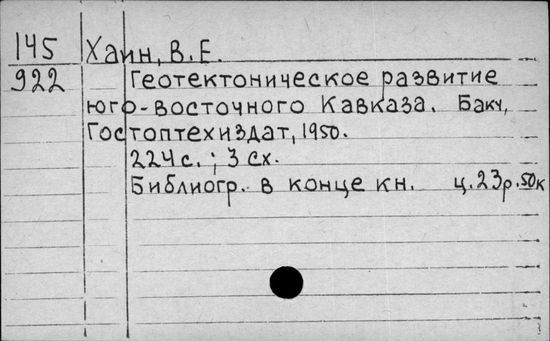 145 Хаин, В.Е.
922 Геотектоническое развитие
юго-восточного Кавказа. Баку,
Гостоптехиздат, 1950.
224с.; 3 сх.
Библиогр. в конце кн. ц.23р.50к